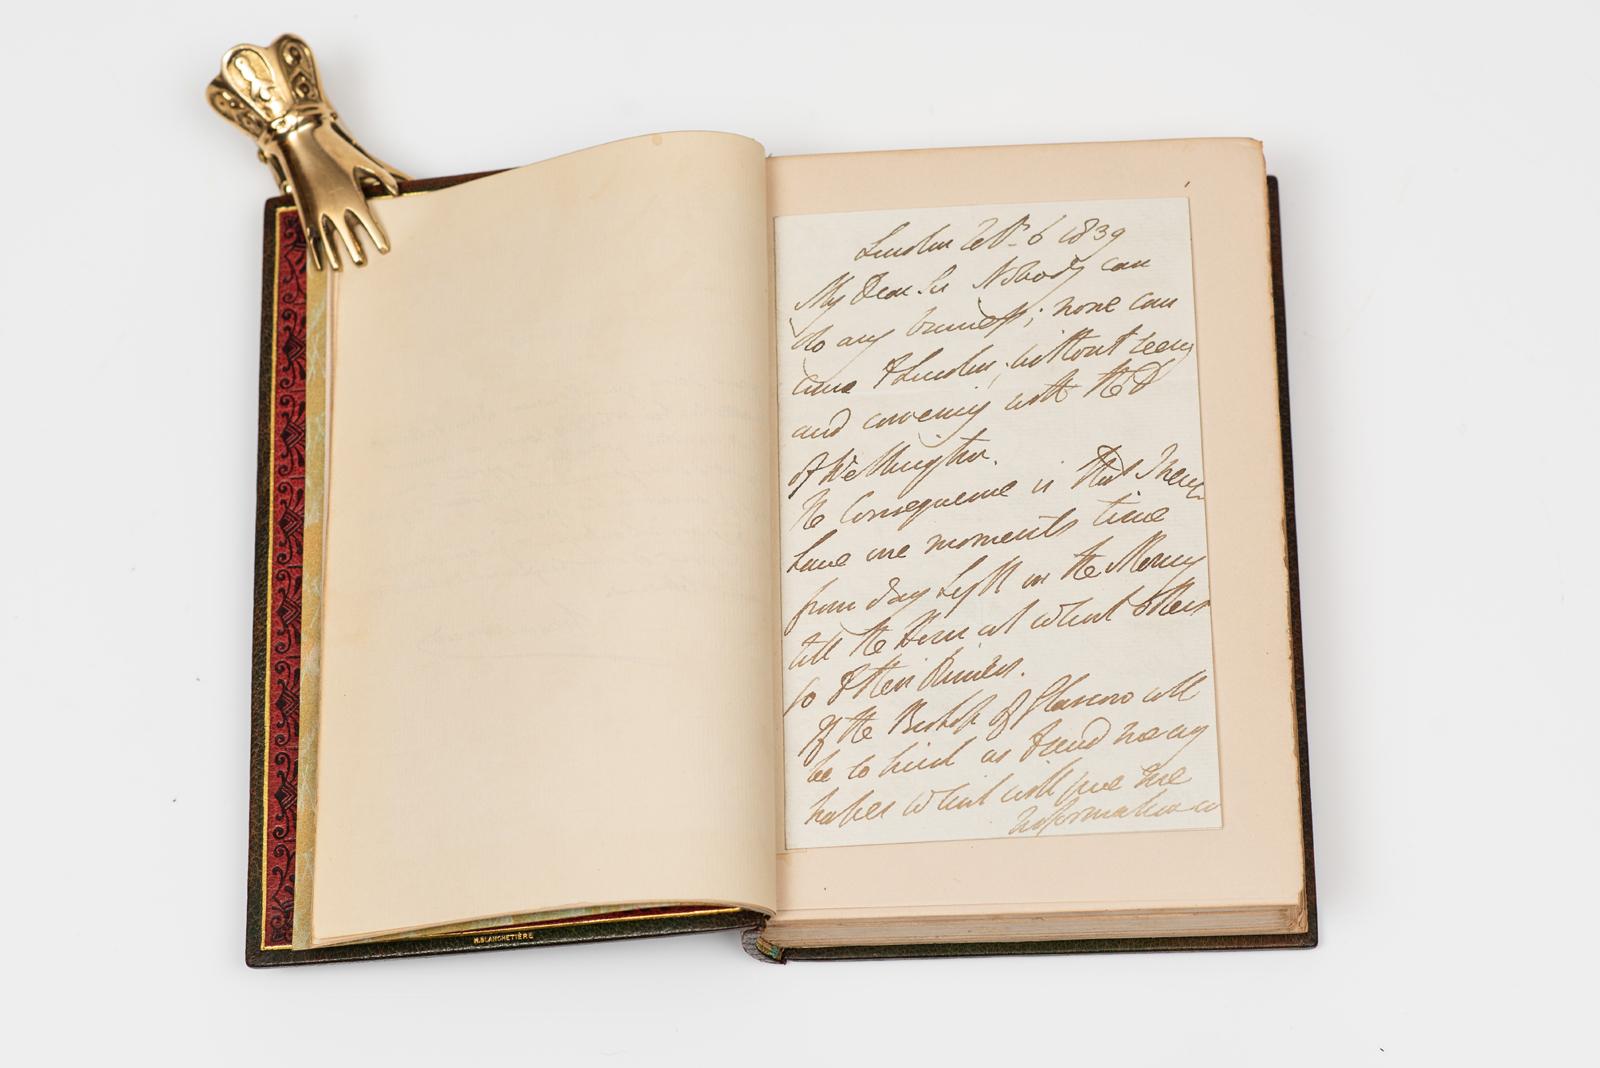 London Feb 6 1839
My Dear Sir Nobody can
do any business; none can
come to London, without seeing
and conversing with the D
of Wellington.
The Consequence is that I never
have one moments time
from day Light in the Morning
till the Hour at what others
go to their Dinners.
If the Bishop of Glasgow will
be so kind as to send me any
what will give me
information
H.BLANCHETIÈRE